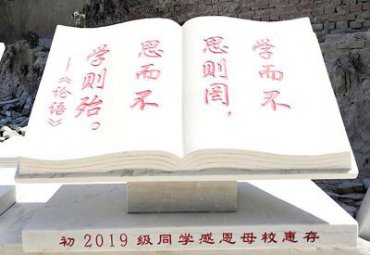 学而不
思则罔，
思而不
学则殆。
—《论语》
初2019级同学感恩母校惠存